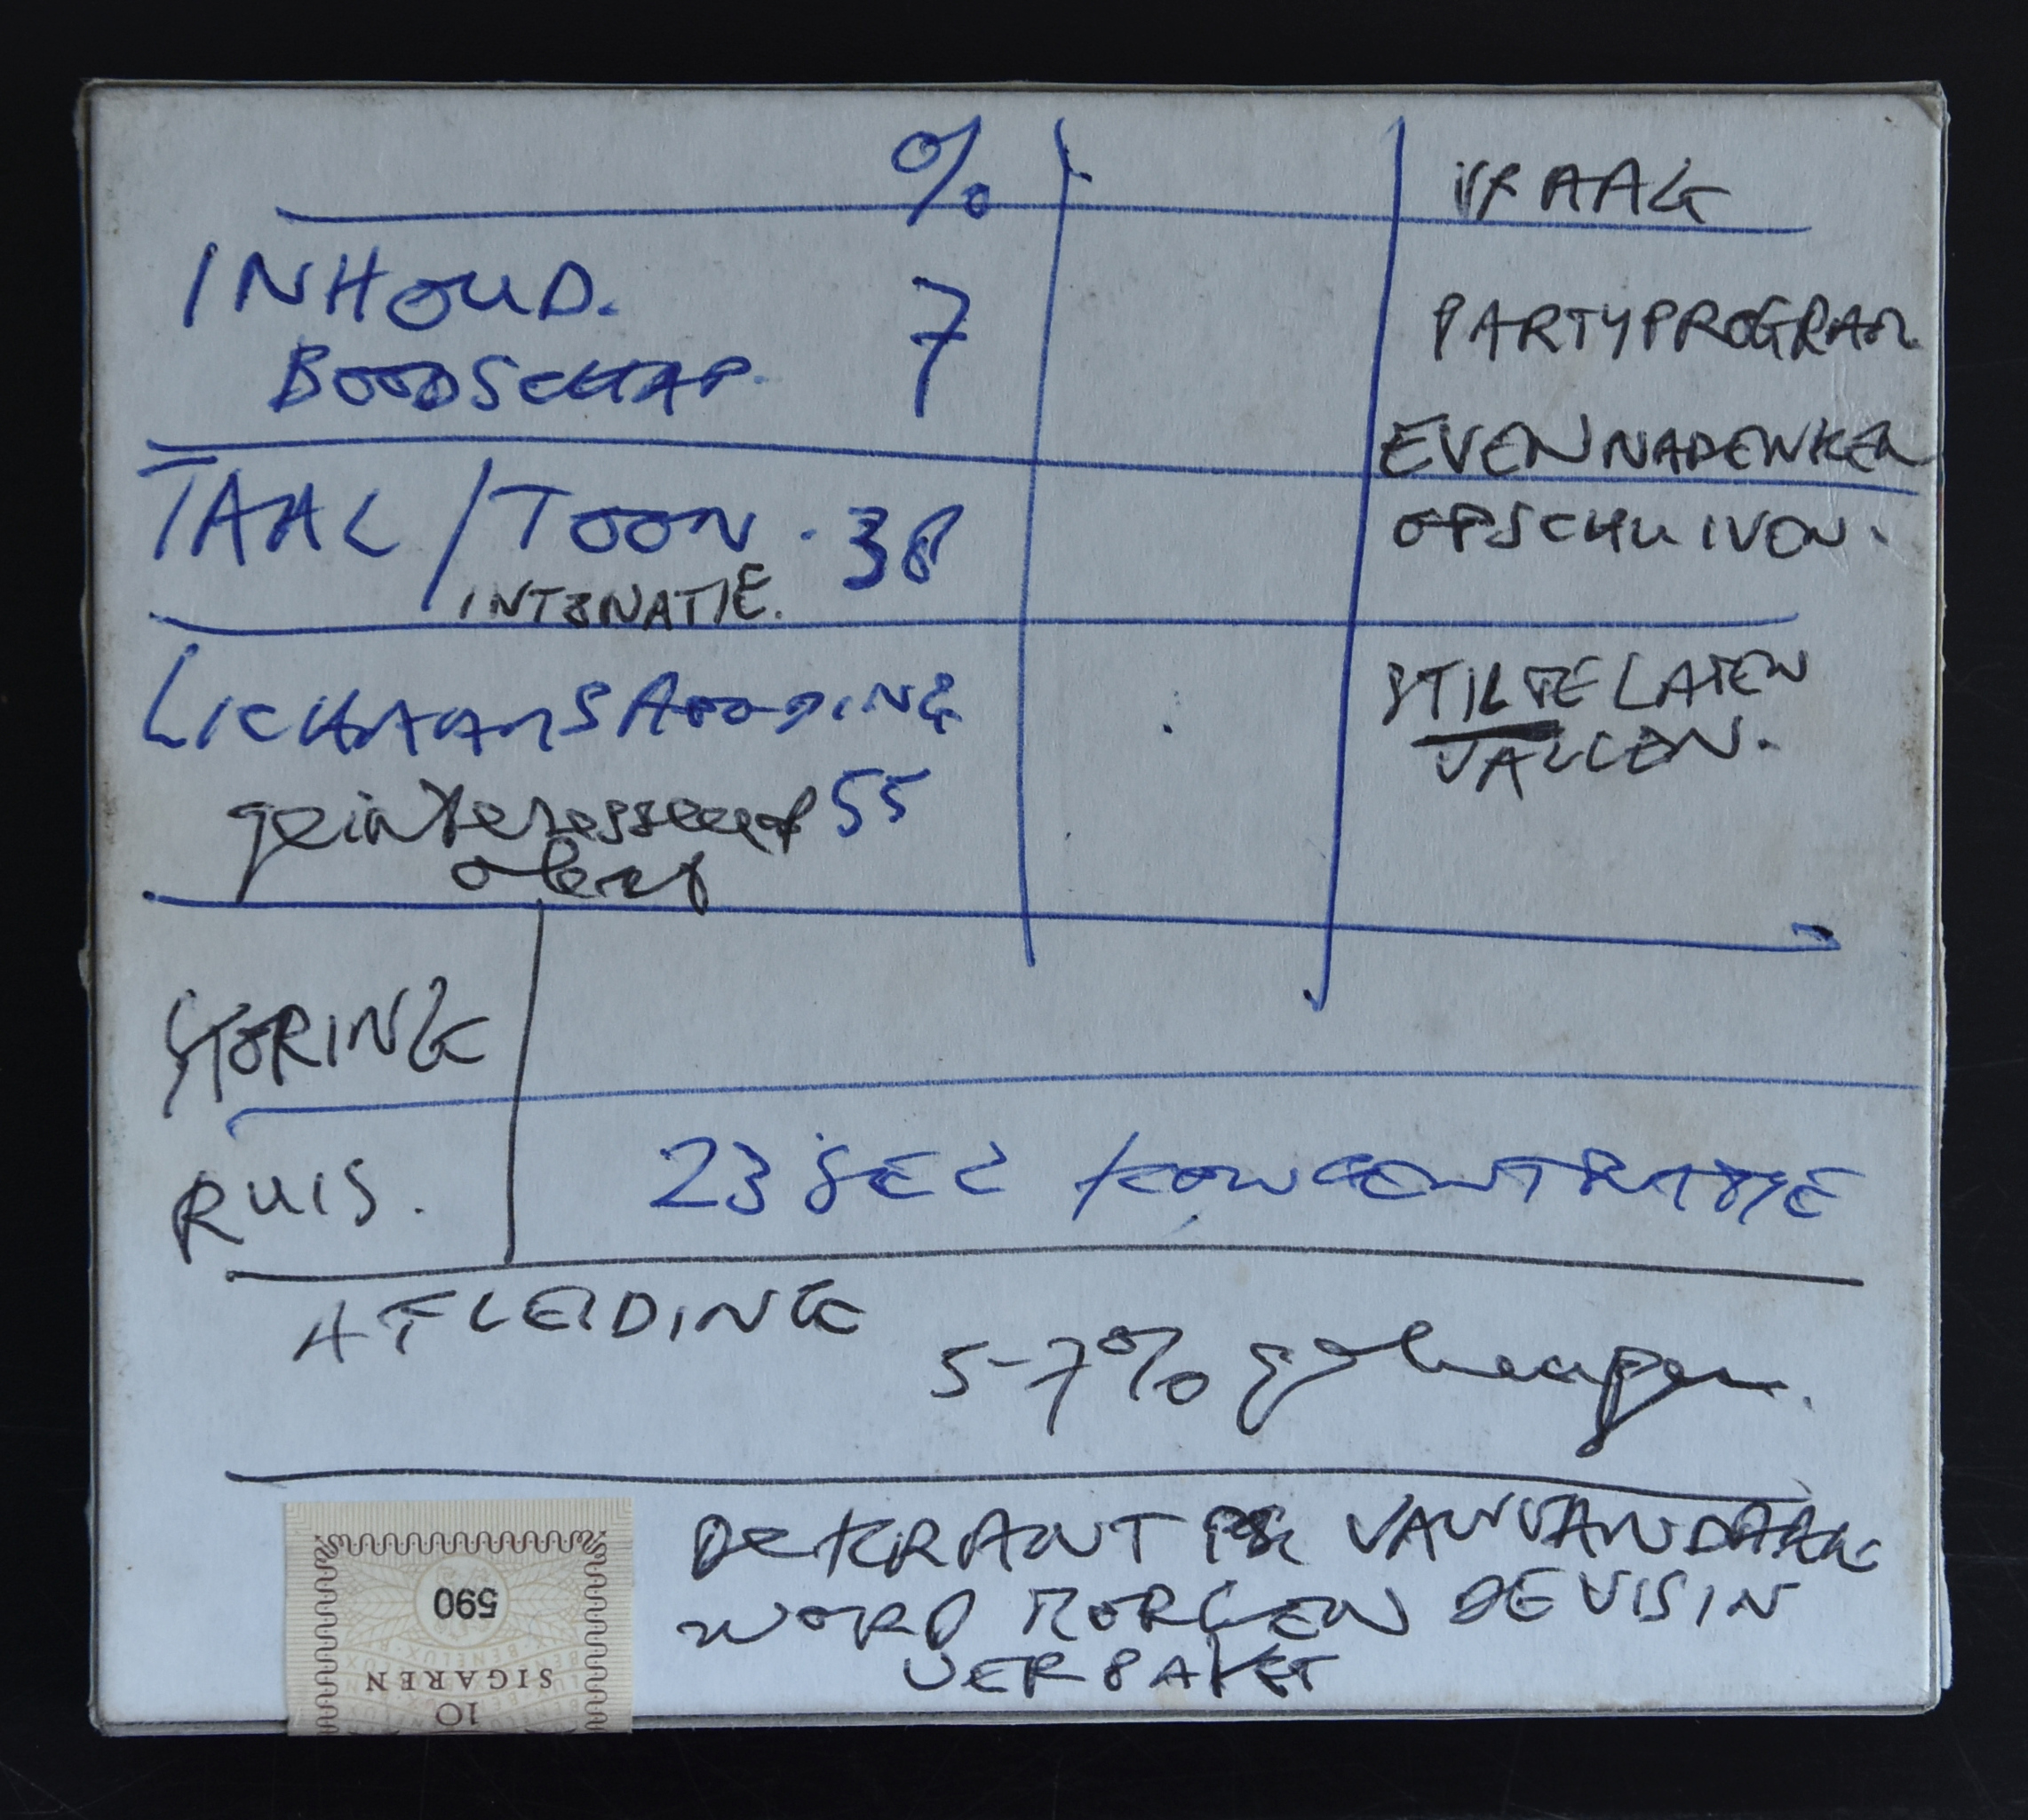 % VRAAG
INHOUD. 7 PARTYPROGRAM
BOODSCHAP.
EVEN NADENKEN
TAAL / TOON. 38 OPSCHUIVEN.
INTONATIE.
LICHAAMSHOODING STILTE LATEN
VALLEN.
geinteresseerd 55
alert
STORING
RUIS. 23 SEC KONCENTRATIE
AFLEIDING
5-7% geheugen.
DE KRANT VAN VANDAAG
WORD MORGEN DE VIS IN
VERPAKT
590
SIGAREN
10